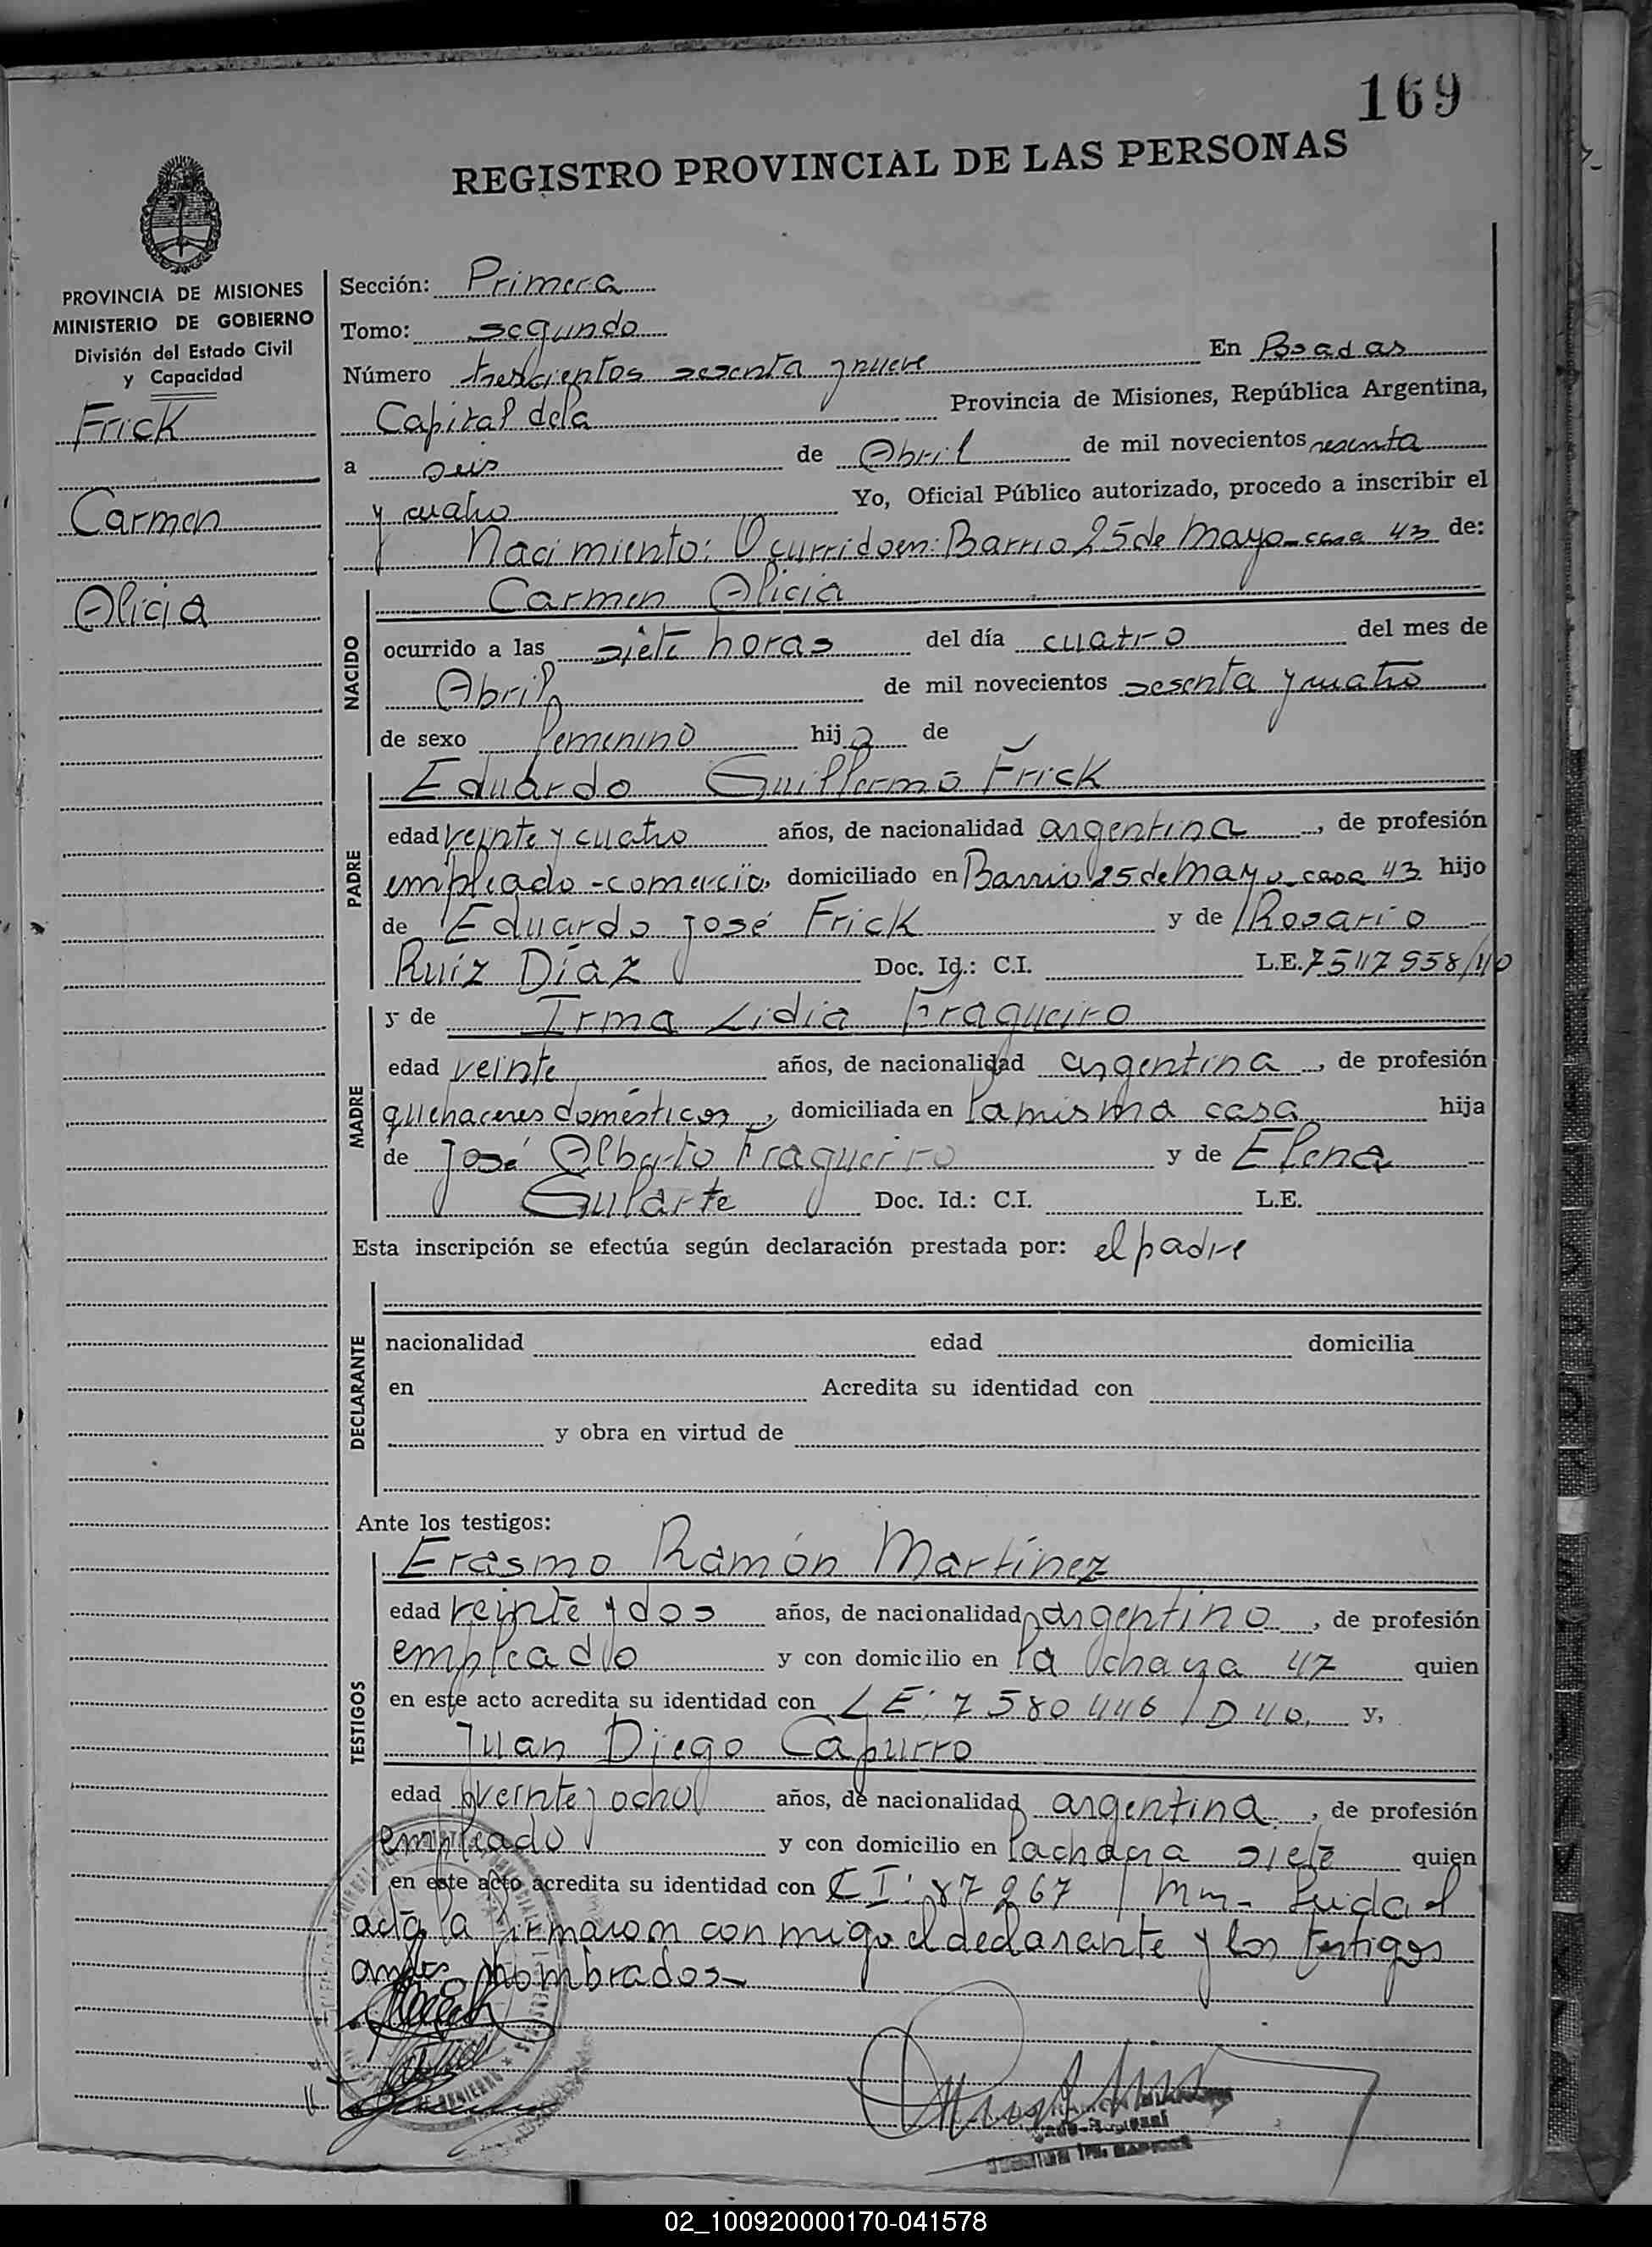 169
REGISTRO PROVINCIAL DE LAS PERSONAS
PROVINCIA DE MISIONES
MINISTERIO DE GOBIERNO
División del Estado Civil
y Capacidad
Frick
Carmen
Alicia
Sección: Primera
Tomo: segundo
Número trescientos sesenta y nueve En Posadas
Capital de la Provincia de Misiones, República Argentina,
a seis de Abril de mil novecientos sesenta
y cuatro Yo, Oficial Público autorizado, procedo a inscribir el
Nacimiento: Ocurrido en: Barrio 25 de Mayo - casa 43 de:
NACIDO
Carmen Alicia
ocurrido a las siete horas del día cuatro del mes de
Abril de mil novecientos sesenta y cuatro
de sexo femenino hija de
PADRE
Eduardo Guillermo Frick
edad veinte y cuatro años, de nacionalidad argentina, de profesión
empleado - comercio, domiciliado en Barrio 25 de Mayo - casa 43 hijo
de Eduardo José Frick y de Rosario
Ruíz Díaz Doc. Id.: C.I. L.E. 7547958/40
MADRE
y de Irma Lidia Fragueiro
edad veinte años, de nacionalidad argentina, de profesión
quehaceres domésticos, domiciliada en la misma casa hija
de José Alberto Fragueiro y de Elena
Gularte Doc. Id.: C.I. L.E.
Esta inscripción se efectúa según declaración prestada por: el padre
DECLARANTE
nacionalidad edad domicilia
en Acredita su identidad con
y obra en virtud de
Ante los testigos:
TESTIGOS
Erasmo Ramón Martínez
edad veinte y dos años, de nacionalidad argentino, de profesión
empleado y con domicilio en la chacra 47 quien
en este acto acredita su identidad con LE: 7580446 / D 40. y,
Juan Diego Capurro
edad veinte y ocho años, de nacionalidad argentina, de profesión
empleado y con domicilio en la chacra siete quien
en este acto acredita su identidad con CI: 87267 / Mm - Leída el
acta la firmaron conmigo el declarante y los testigos
antes nombrados -
02_100920000170-041578